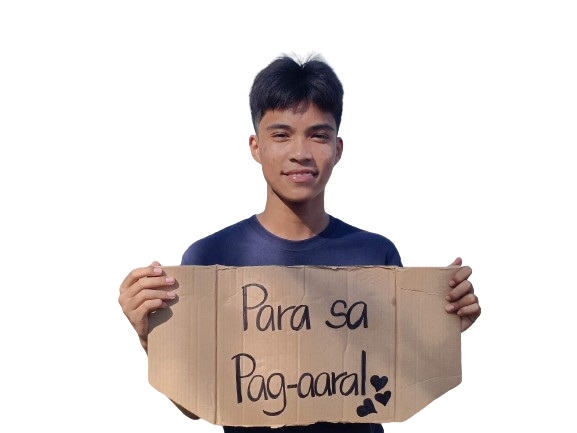 Para sa
Pag-aaral